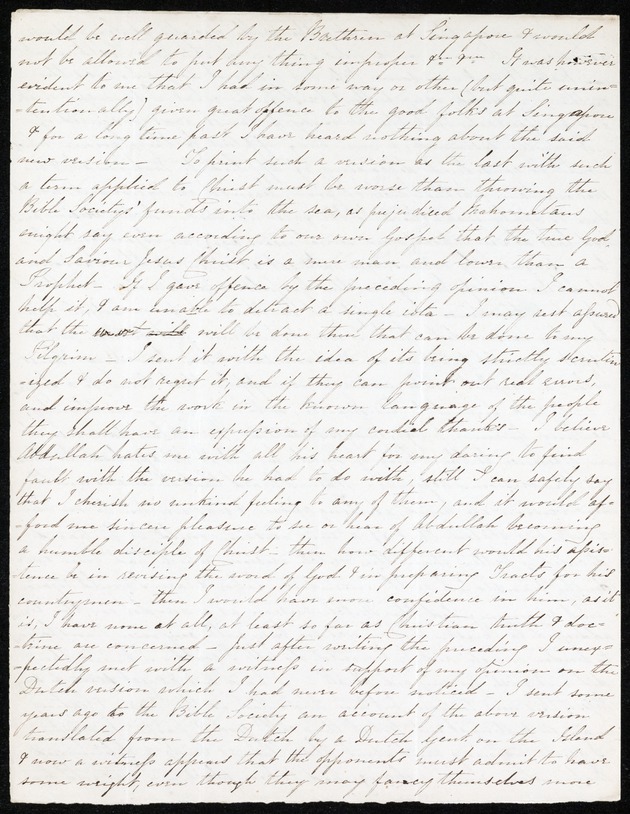 would be well guarded by the Brethren at Singapore & would
not be allowed to put any thing improper &c &c. It was however
evident to me that I had in some way or other (but quite unin=
-tentionally) given great offence to the good folks at Singapore
& for a long time past I have heard nothing about the said
new version — To print such a version as the last with such
a term applied to Christ must be worse than throwing the
Bible Societies' funds into the sea, as prejudiced Mahometans
might say even according to our own Gospel that the true God
and Saviour Jesus Christ is a mere man and lower than a
Prophet — If I gave offence by the preceding opinion I cannot
help it, & am unable to detract a single iota — I may rest assured
that the will be done then that can be done to my
Pilgrim — I sent it with the idea of its being strictly scrutin
-ized & do not regret it, and if they can point out real errors,
and improve the work in the known language of the people
they shall have an expression of my cordial thanks — I believe
Abdullah hates me with all his heart for my daring to find
fault with the version he had to do with, still I can safely say
that I cherish no unkind feeling to any of them, and it would af=
-ford me sincere pleasure to see or hear of Abdullah becoming
a humble disciple of Christ — then how different would his assis=
tance be in revising the word of God & in preparing Tracts for his
countrymen — then I would have more confidence in him, as it
is, I have none at all, at least so far as Christian truth & doc=
trine are concerned — Just after writing the preceding I unex=
-pectedly met with a witness in support of my opinion on the
Dutch version which I had never before noticed — I sent some
years ago to the Bible Society an account of the above version
translated from the Dutch by a Dutch Gent on the Island
& now a witness appears that the opponents must admit to have
some weight, even though they may fancy themselves more